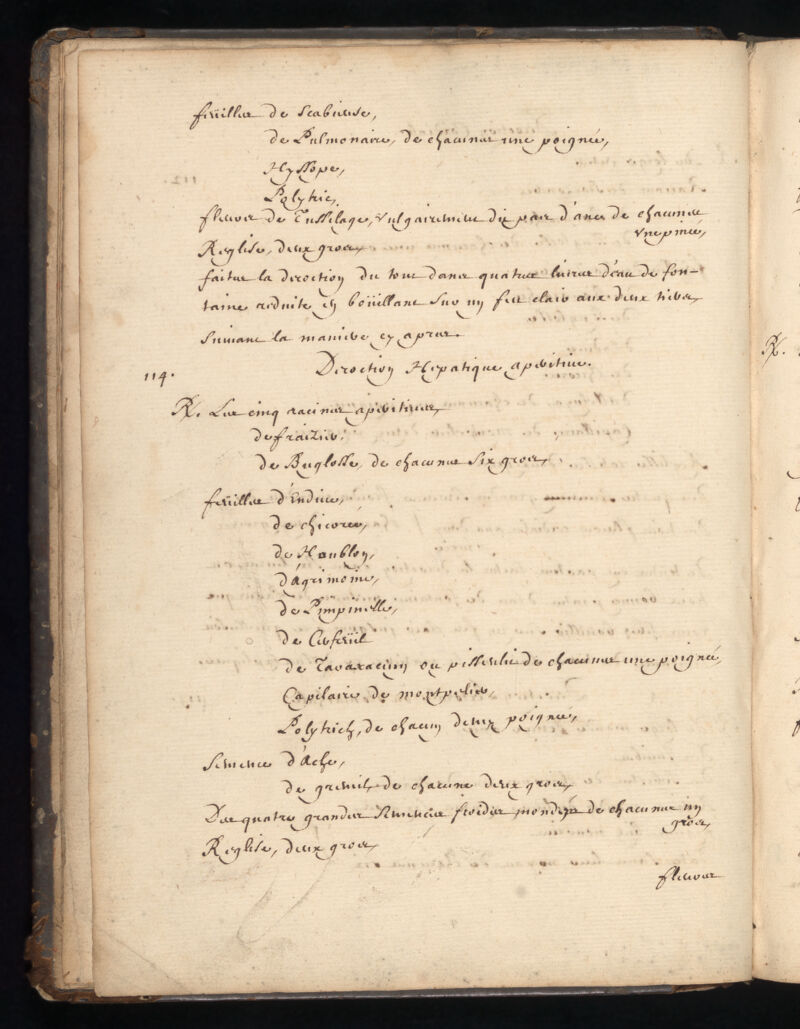 feüilles de Scabieuse,
de Pulmonaire, de chacunes une poignée,
Hyssope,
Polytric,
fleurs de Tussilage, vulgairement dit pas d'anes de chacunes
une pincée,
Reglise, deux gros,
faites la decoction du tout dans quatres livres d'eau de fon-
taine reduite en boüillant sur un feu clair aux deux tiers,
suivant la maniere cy apres.
114. Decoction Hepatique aperitive.
R. Les cinq racines aperitives,
de fraizier,
de Buglosse, de chacunes six gros,
feüilles d'Endive,
de chicorée,
de Houblon,
d'agrimoine,
de Pimpinelle,
de Cerfeüil
de Taraxacum ou pissenlit de chacunes une poignée,
Capilaire de montpelier,
Polytrich, de chacun demie poignée,
Semence d'Ache,
de gremil, de chacune deux gros,
Des quatre grandes Semences froides mondées de chacunes un
gros,
Reglise, deux gros,
fleurs